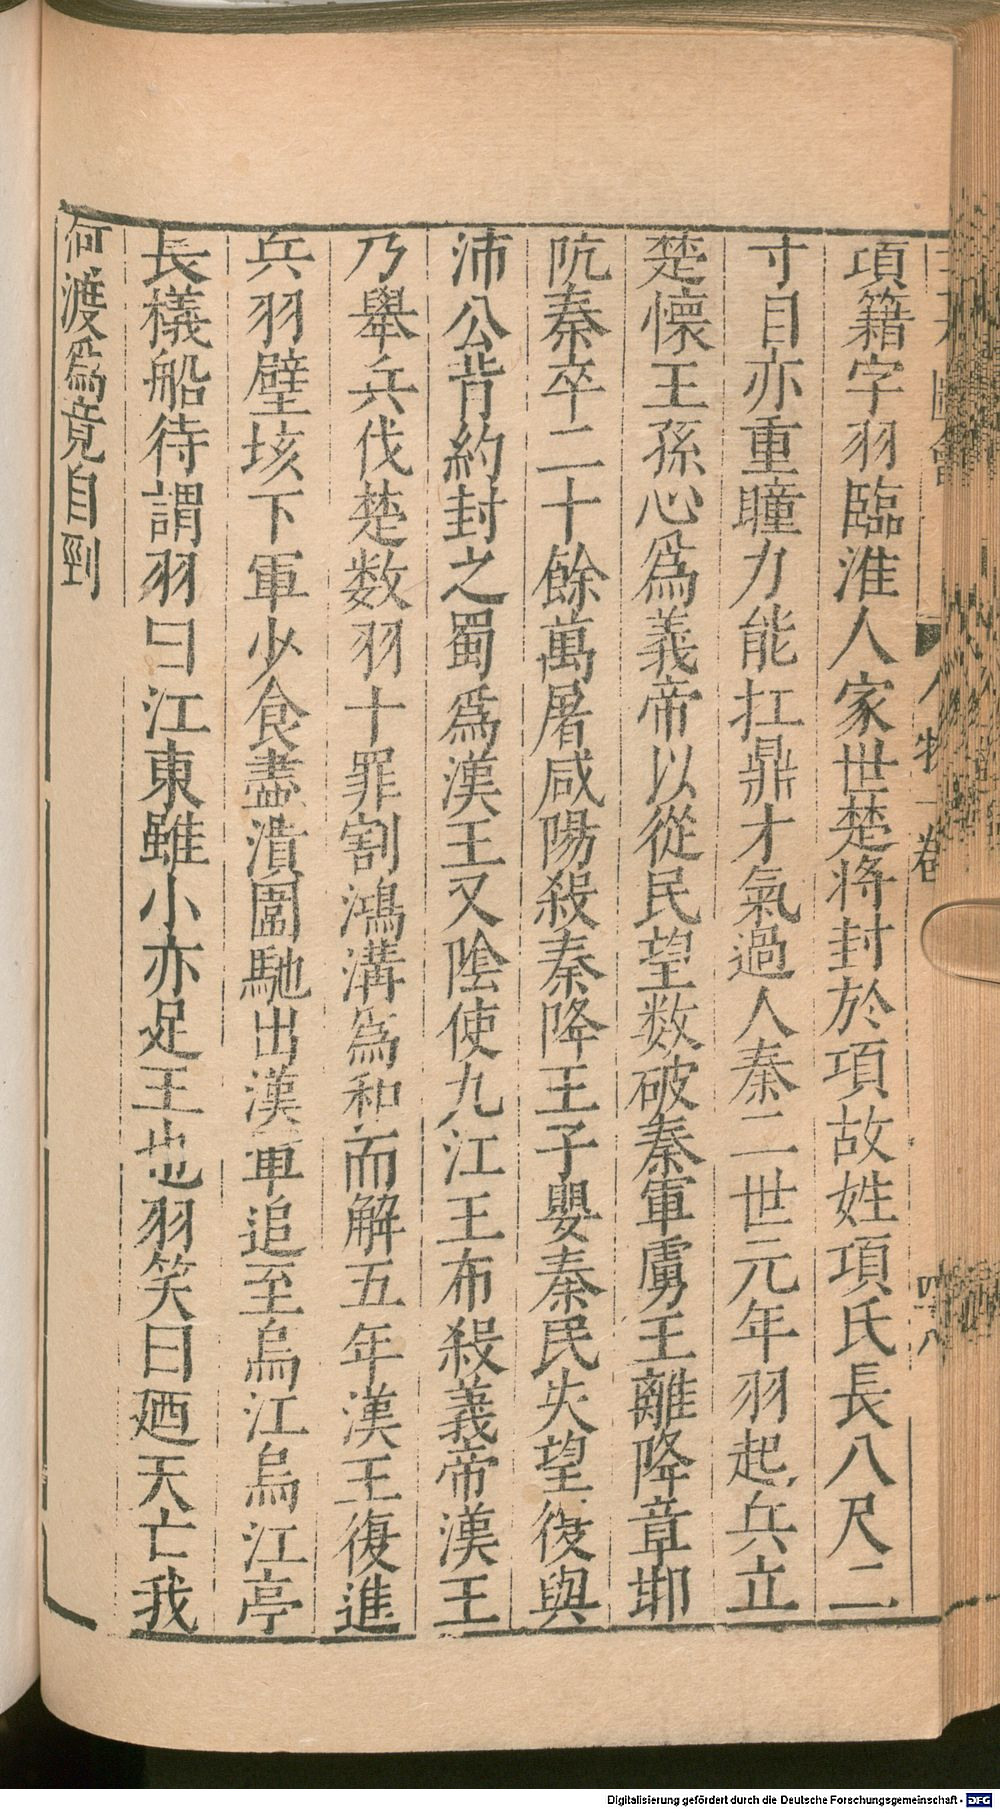 三才圖會 人物一卷 四十八
項籍字羽臨淮人家世楚將封於項故姓項氏長八尺二
寸目亦重瞳力能扛鼎才氣過人秦二世元年羽起兵立
楚懷王孫心爲義帝以從民望数破秦軍虜王離降章邯
阬秦卒二十餘萬屠咸陽殺秦降王子嬰秦民失望復與
沛公背約封之蜀爲漢王又陰使九江王布殺義帝漢王
乃舉兵伐楚数羽十罪割鴻溝爲和而解五年漢王復進
兵羽壁垓下軍少食盡潰圍馳出漢軍追至烏江烏江亭
長檥船待謂羽曰江東雖小亦足王也羽笑曰廼天亡我
何渡爲竟自剄
Digitalisierung gefördert durch die Deutsche Forschungsgemeinschaft - DFG